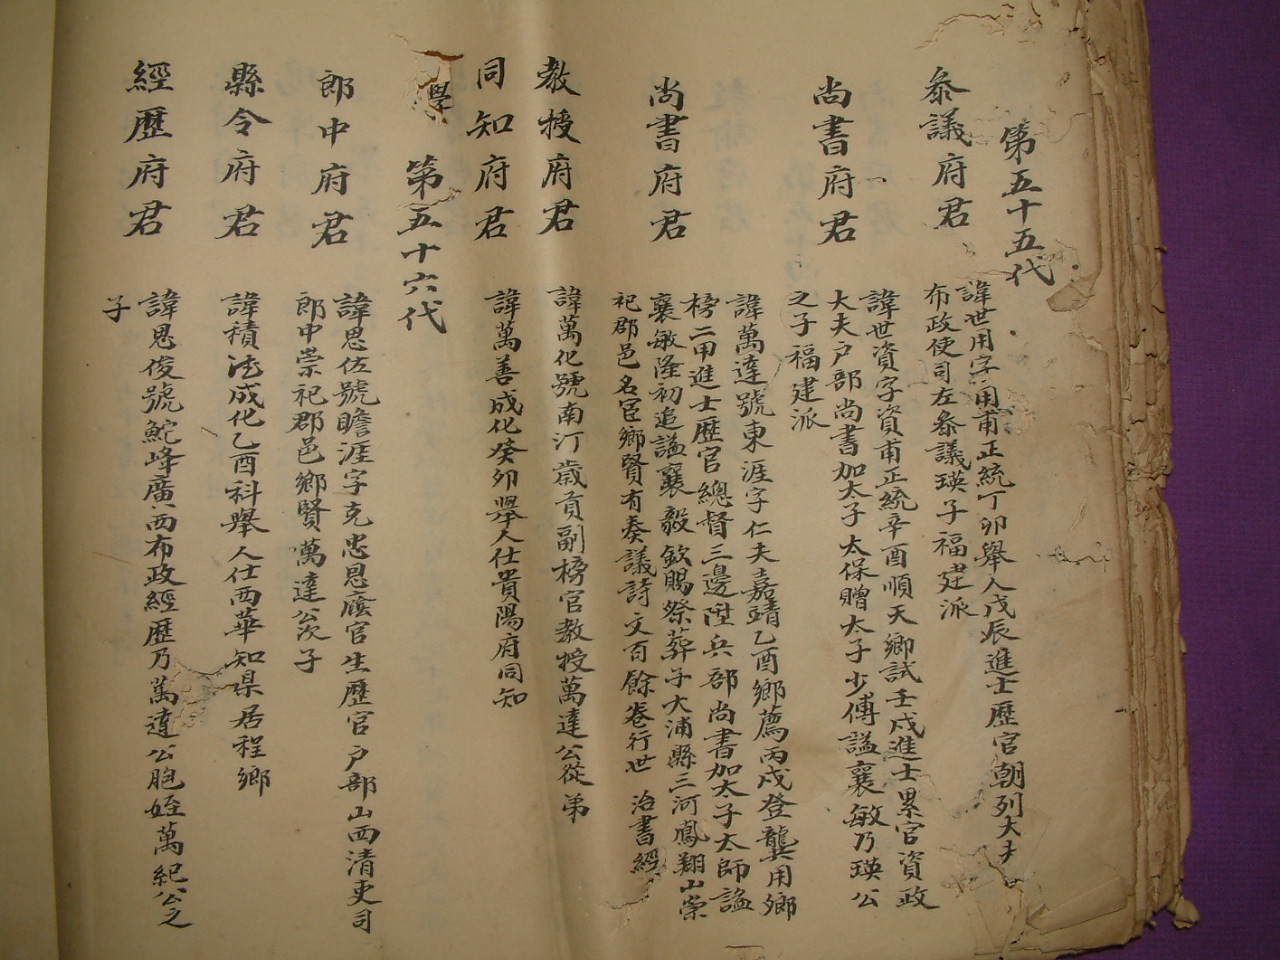 第五十五代
叅議府君
諱世用字用甫正統丁卯舉人戊辰進士歷官朝列大夫
布政使司左叅議瑛子福建派
尚書府君
諱世資字資甫正統辛酉順天鄉試壬戌進士累官資政
大夫户部尚書加太子太保贈太子少傅謚襄敏乃瑛公
之子福建派
尚書府君
諱萬達號東涯字仁夫嘉靖乙酉鄉薦丙戌登龔用鄉
榜二甲進士歷官總督三邊陞兵部尚書加太子太師謚
襄敏隆初追謚襄毅欽賜祭葬子大浦縣三河鳳翔山崇
祀郡邑名宦鄉賢有奏議詩文百餘卷行世 治書經
教授府君
諱萬化號南汀歲貢副榜官教授萬達公從弟
同知府君
諱萬善成化癸卯舉人仕貴陽府同知
學
第五十六代
郎中府君
諱思佐號瞻涯字克忠恩廕官生歷官户部山西清吏司
郎中崇祀郡邑鄉賢萬達公次子
縣令府君
諱積 成化乙酉科舉人仕西華知県居程鄉
經歷府君
諱思俊號鮀峰廣西布政經歷乃萬達公胞姪萬紀公之
子